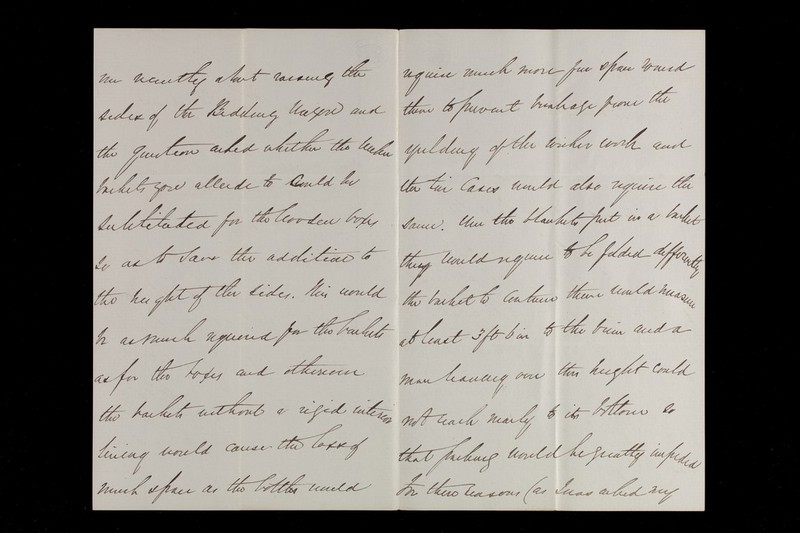 me recently about raising the
sides of the Bedding Wagon and
the question asked whether the Wicker
baskets you allude to could be
substituted for the wooden boxes
so as to save the addition to
the height of the sides. This would
be as much required for the baskets
as for the boxes and otherwise
the baskets without a rigid interior
lining would cause the loss of
much space as the bottles would
require much more free space round
them to prevent breakage from the
yielding of the wicker work and
the tin Cases would also require the
same. Were the blankets put in a basket
they would require to be folded differently
the basket to contain them would measure
at least 3 ft 6 in to the brim and a
man leaning over this height could
not reach nearly to its bottom so
that packing would be greatly impeded
For these reasons (as I was asked my